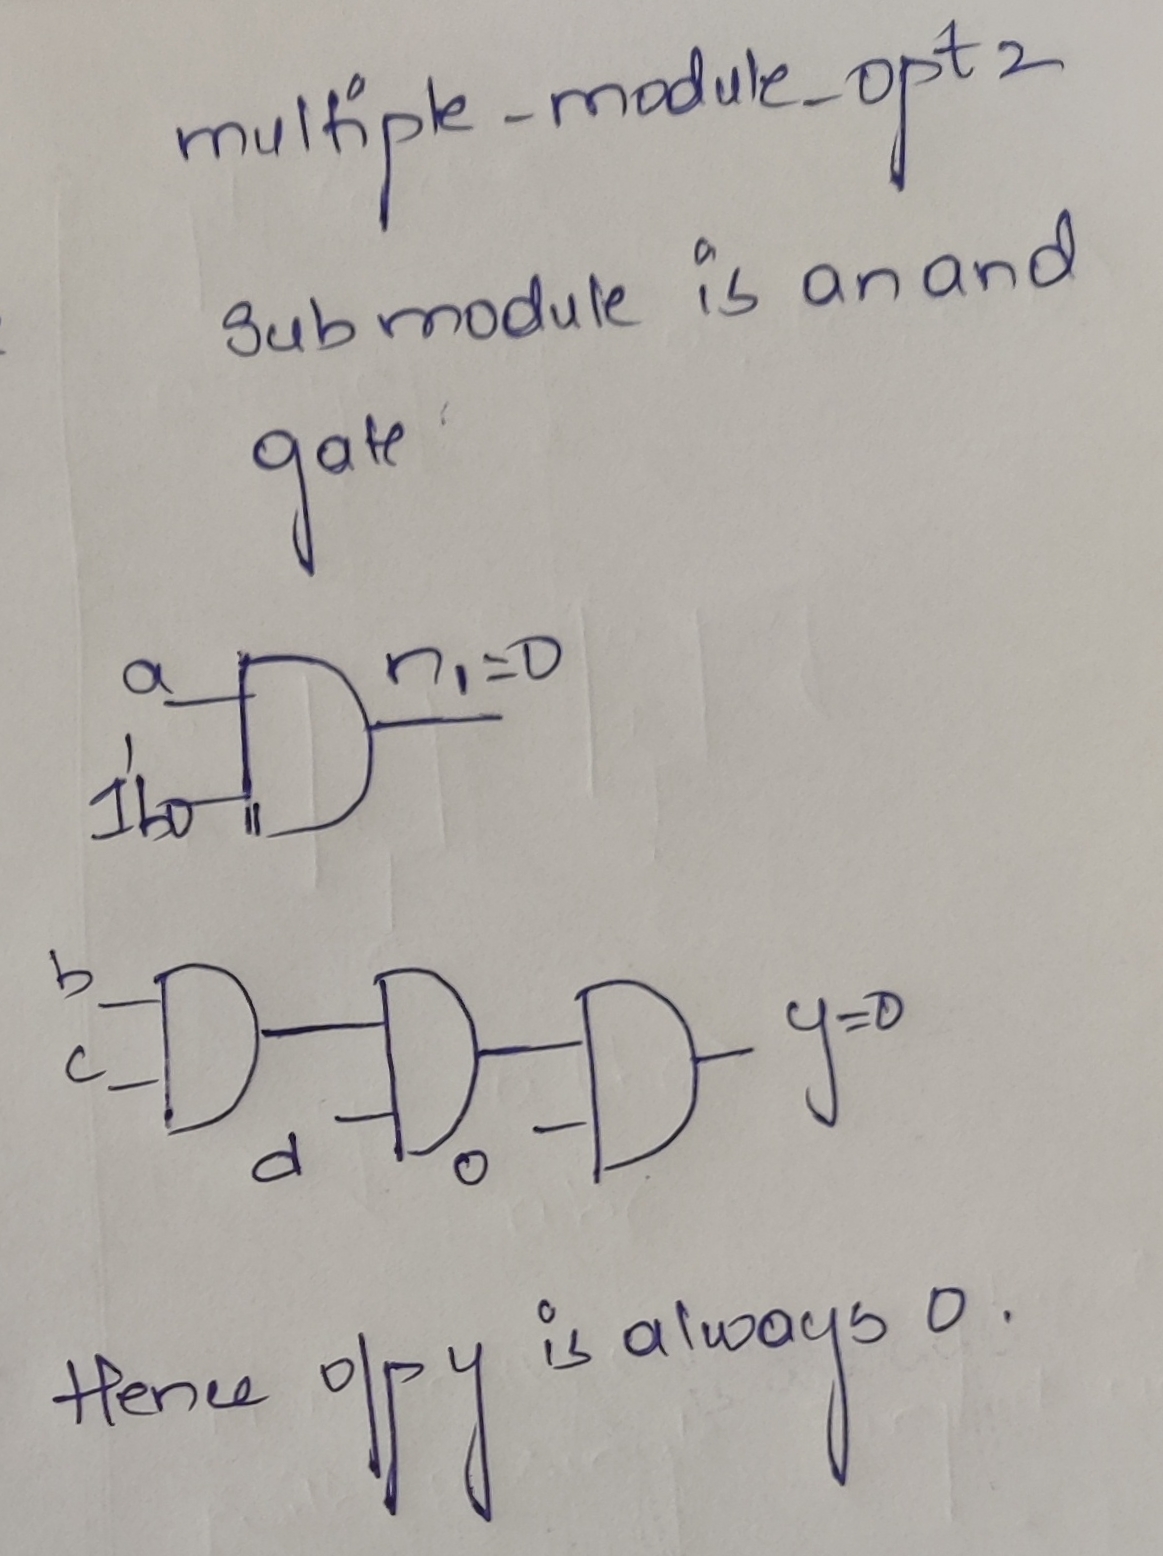 multiple-module_opt2
Submodule is an and
gate
a
n1=0
1'b0
b
c
d
0
y=0
Hence o/p y is always 0.